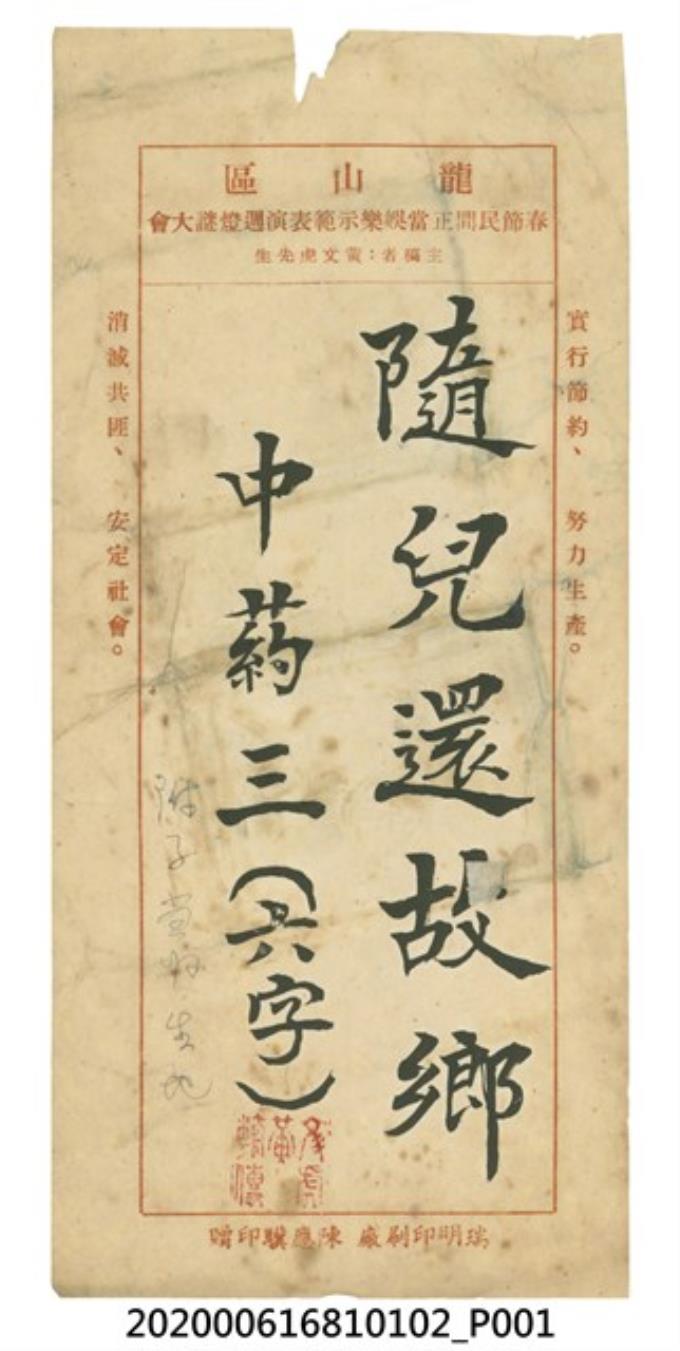 龍山區
春節民間正當娛樂示範表演週燈謎大會
主稿者：黃文虎先生
實行節約、努力生產。
隨兒還故鄉
中葯三（六字）
附子當歸生地
消滅共匪、安定社會。
瑞明印刷廠 陳應騤印贈
202000616810102_P001